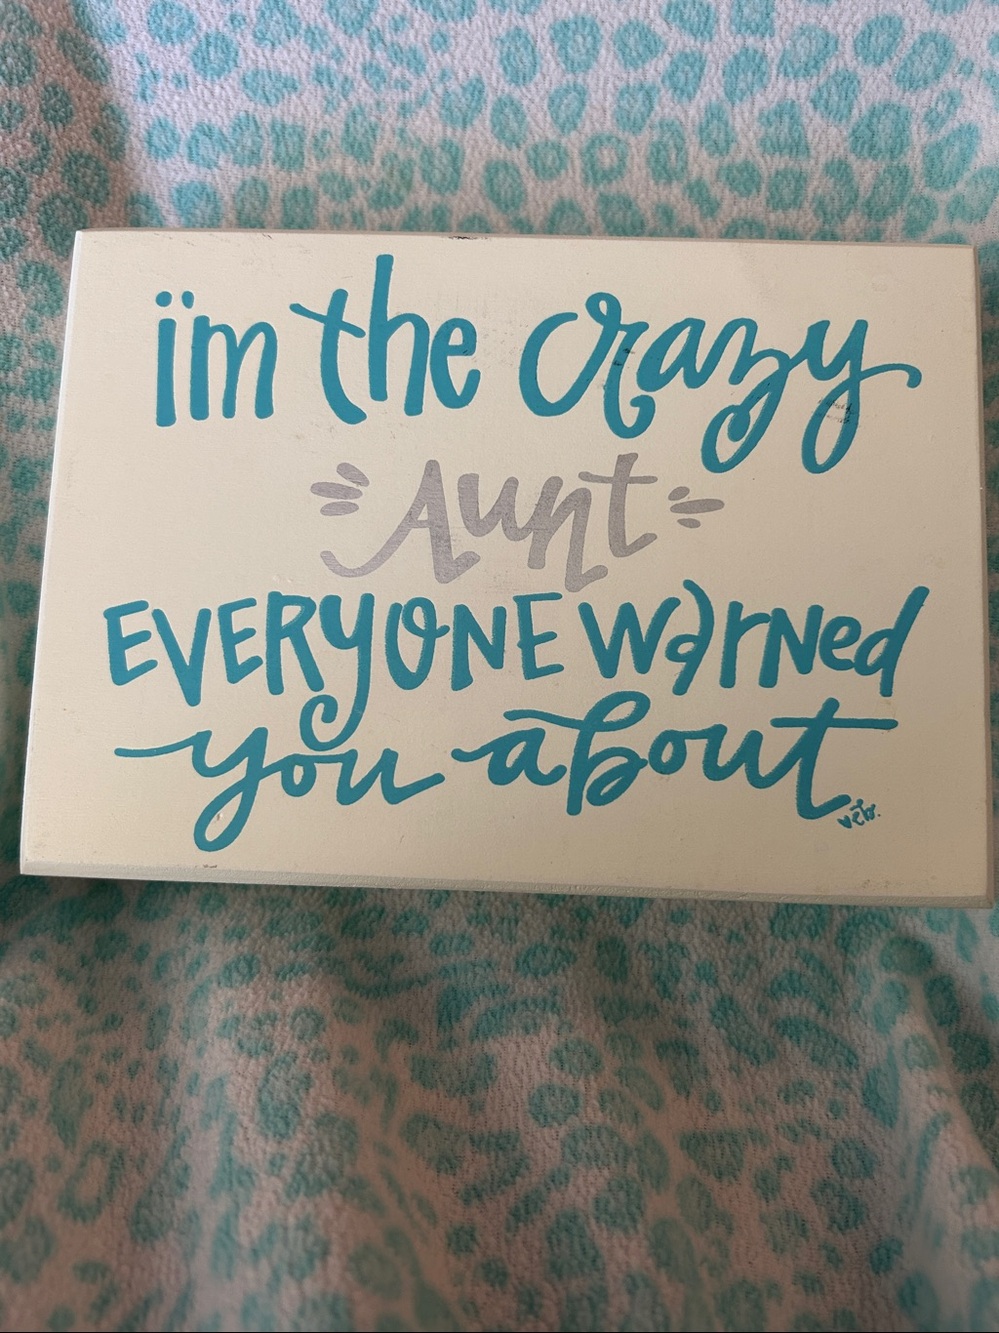 i'm the crazy
Aunt
EVERYONE warned
you about.